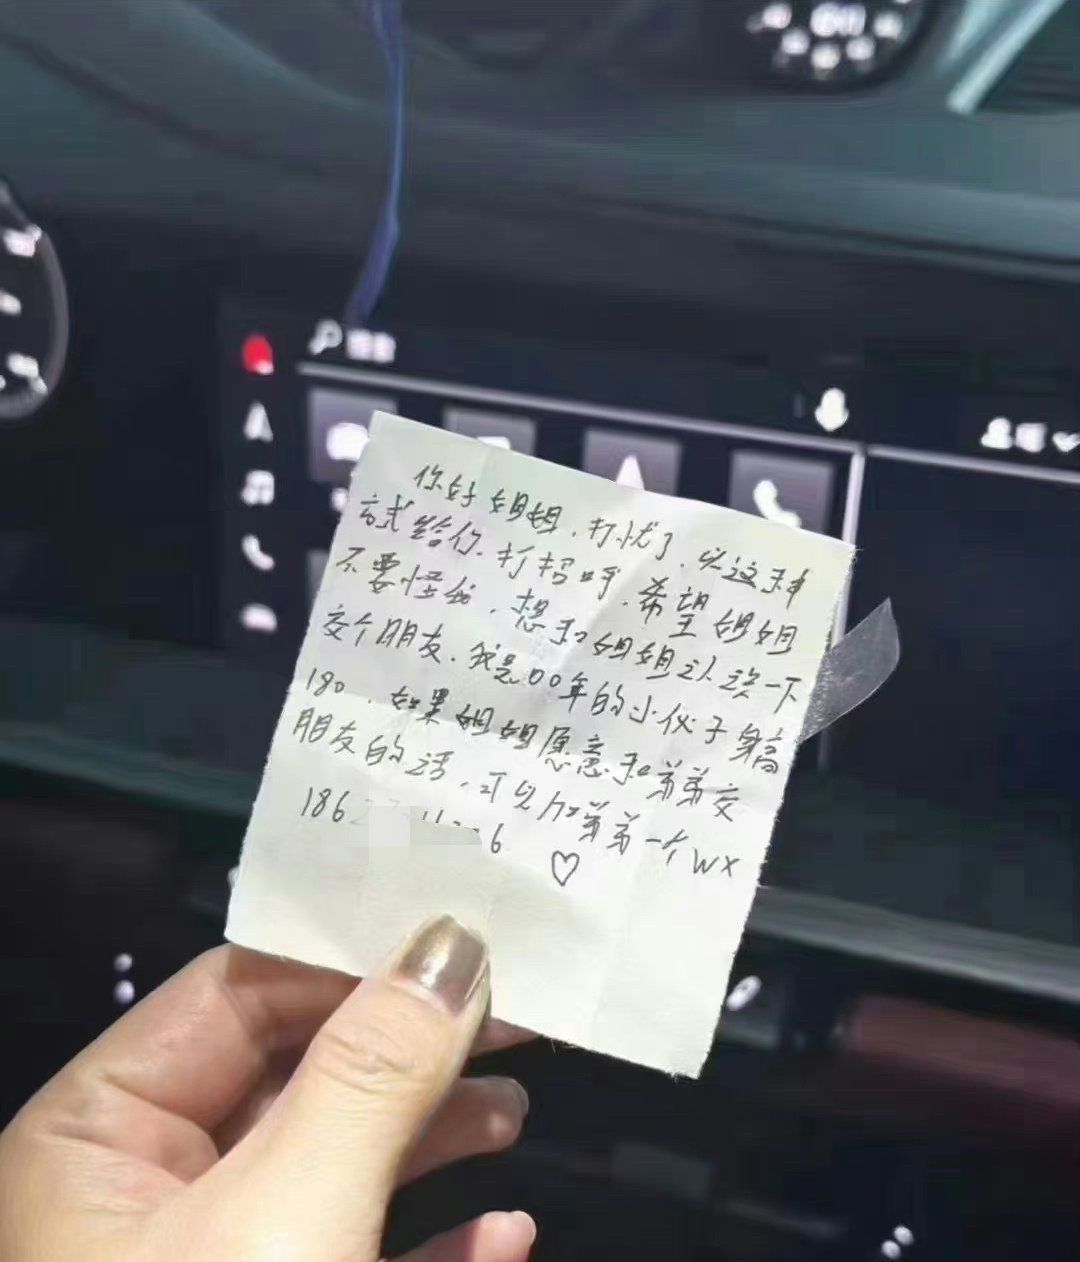 你好姐姐，打扰了，以这种
方式给你打招呼，希望姐姐
不要怪我，想和姐姐认识一下
交个朋友，我是00年的小伙子身高
180，如果姐姐愿意和弟弟交
朋友的话，可以加弟弟一个WX
186 6